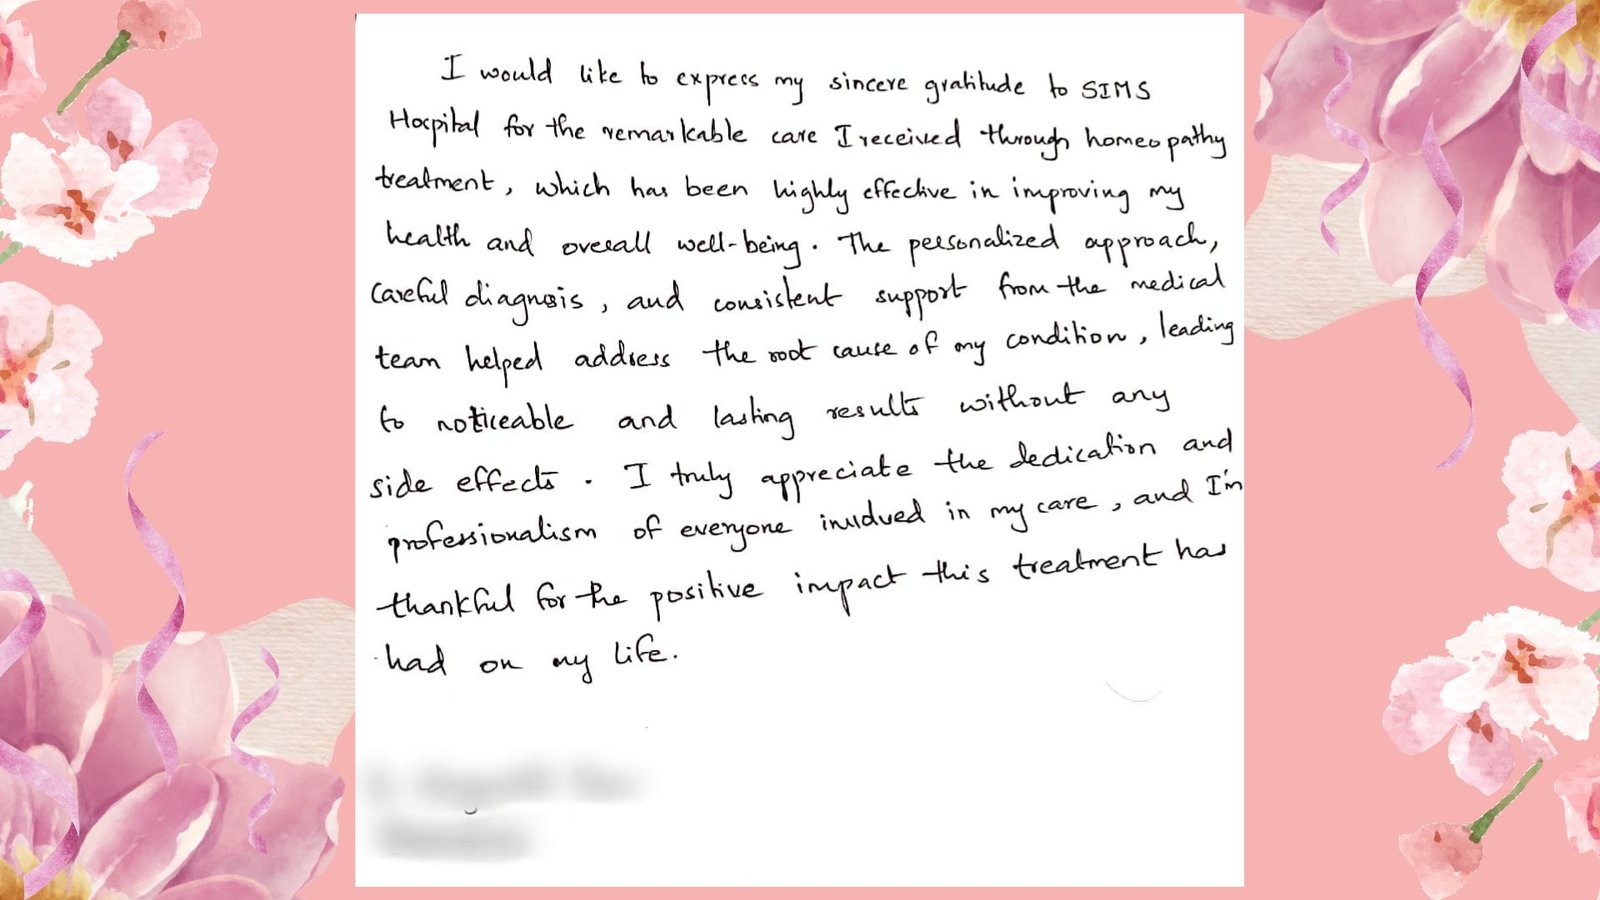 I would like to express my sincere gratitude to SIMS
Hospital for the remarkable care I received through homeopathy
treatment, which has been highly effective in improving my
health and overall well-being. The personalized approach,
careful diagnosis, and consistent support from the medical
team helped address the root cause of my condition, leading
to noticeable and lasting results without any
side effects. I truly appreciate the dedication and
professionalism of everyone involved in my care, and I'm
thankful for the positive impact this treatment has
had on my life.